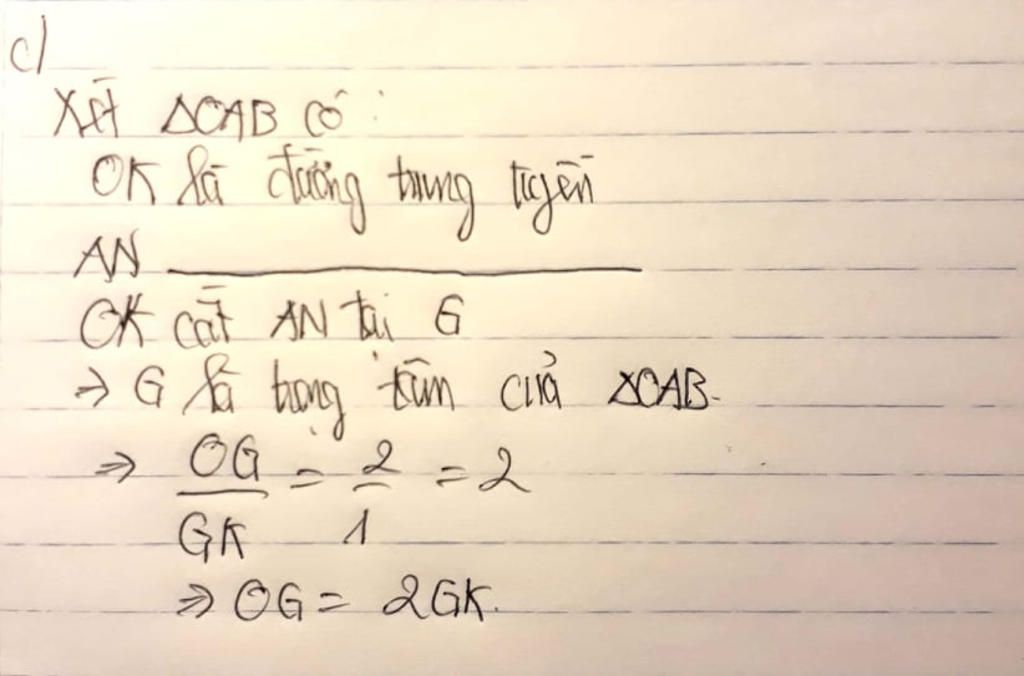 c)
Xét ΔOAB có :
OK là đường trung tuyến
AN ________
OK cắt AN tại G
=> G là trọng tâm của ΔOAB.
=> OG/GK = 2/1 = 2
=> OG = 2GK.